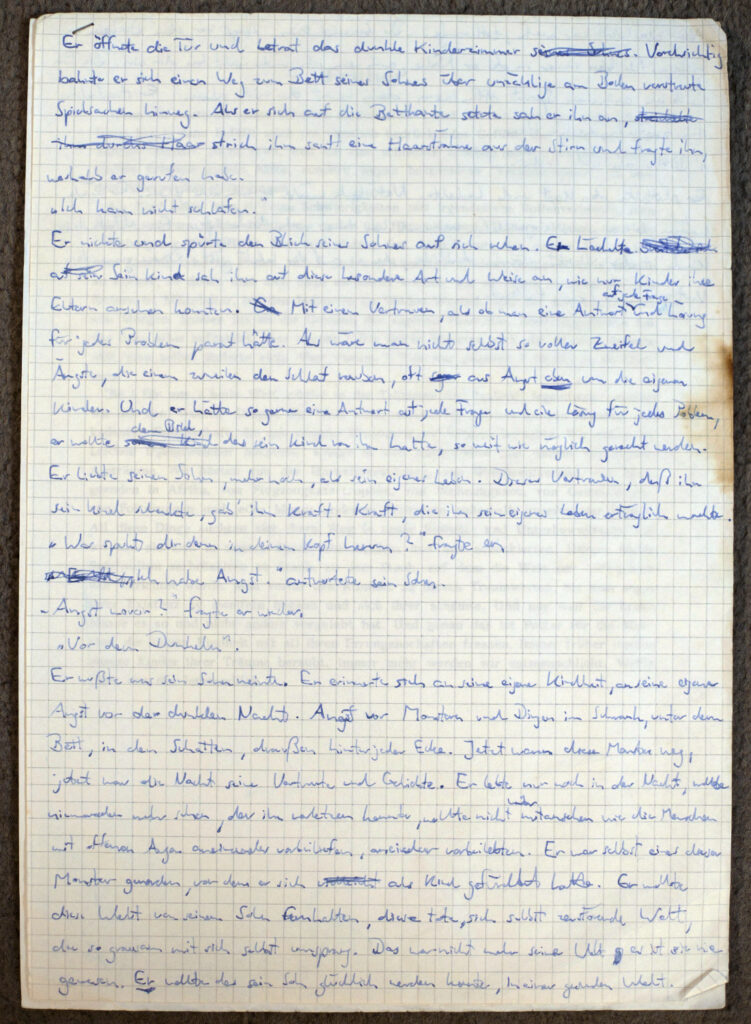 Er öffnete die Tür und betrat das dunkle Kinderzimmer seines Sohnes. Vorsichtig
bahnte er sich einen Weg zum Bett seines Sohnes über unzählige am Boden verstreute
Spielsachen hinweg. Als er sich auf die Bettkante setzte sah er ihn an,
ihm durchs Haar strich ihm sanft eine Haarsträhne aus der Stirn und fragte ihn,
weshalb er gerufen habe.
„Ich kann nicht schlafen."
Er nickte und spürte den Blick seines Sohnes auf sich ruhen. Er lächelte
auf sein Sein Kind sah ihn auf diese besondere Art und Weise an, wie nur Kinder ihre
Eltern ansehen konnten. Mit einem Vertrauen, als ob man eine Antwort auf jede Frage und Lösung
für jedes Problem parat hätte. Als wäre man nicht selbst so voller Zweifel und
Ängste, die einem zuweilen den Schlaf rauben, oft aus Angst eben um die eigenen
Kinder. Und er hätte so gerne eine Antwort auf jede Frage und eine Lösung für jedes Problem,
er wollte dem Blick, das sein Kind von ihm hatte, so weit wie möglich gerecht werden.
Er liebte seinen Sohn, mehr noch, als sein eigenes Leben. Dieses Vertrauen, daß ihm
sein Kind schenkte, gab' ihm Kraft. Kraft, die ihm sein eigenes Leben erträglich machte.
„Was spukt dir denn in deinem Kopf herum?" fragte er.
„Ich habe Angst." antwortete sein Sohn.
„Angst wovor?" fragte er weiter.
„Vor dem Dunkeln".
Er wußte was sein Sohn meinte. Er erinnerte sich an seine eigene Kindheit, an seine eigene
Angst vor der dunklen Nacht. Angst vor Monstern und Dingen im Schrank, unter dem
Bett, in den Schatten, draußen hinter jeder Ecke. Jetzt waren diese Monster weg,
jetzt war die Nacht seine Vertraute und Geliebte. Er lebte nur noch in der Nacht, wollte
niemanden mehr sehen, der ihn verletzen konnte, wollte nicht mitansehen wie die Menschen
mit offenen Augen aneinander vorbeiliefen, aneinander vorbeilebten. Er war selbst eines dieser
Monster geworden, vor denen er sich als Kind gefürchtet hatte. Er wollte
diese Welt von seinem Sohn fernhalten, diese tote, sich selbst zerstörende Welt,
die so grausam mit sich selbst umsprang. Das war nicht mehr seine Welt, er ist sie nie
gewesen. Er wollte das sein Sohn glücklich werden konnte, in einer gesunden Welt.